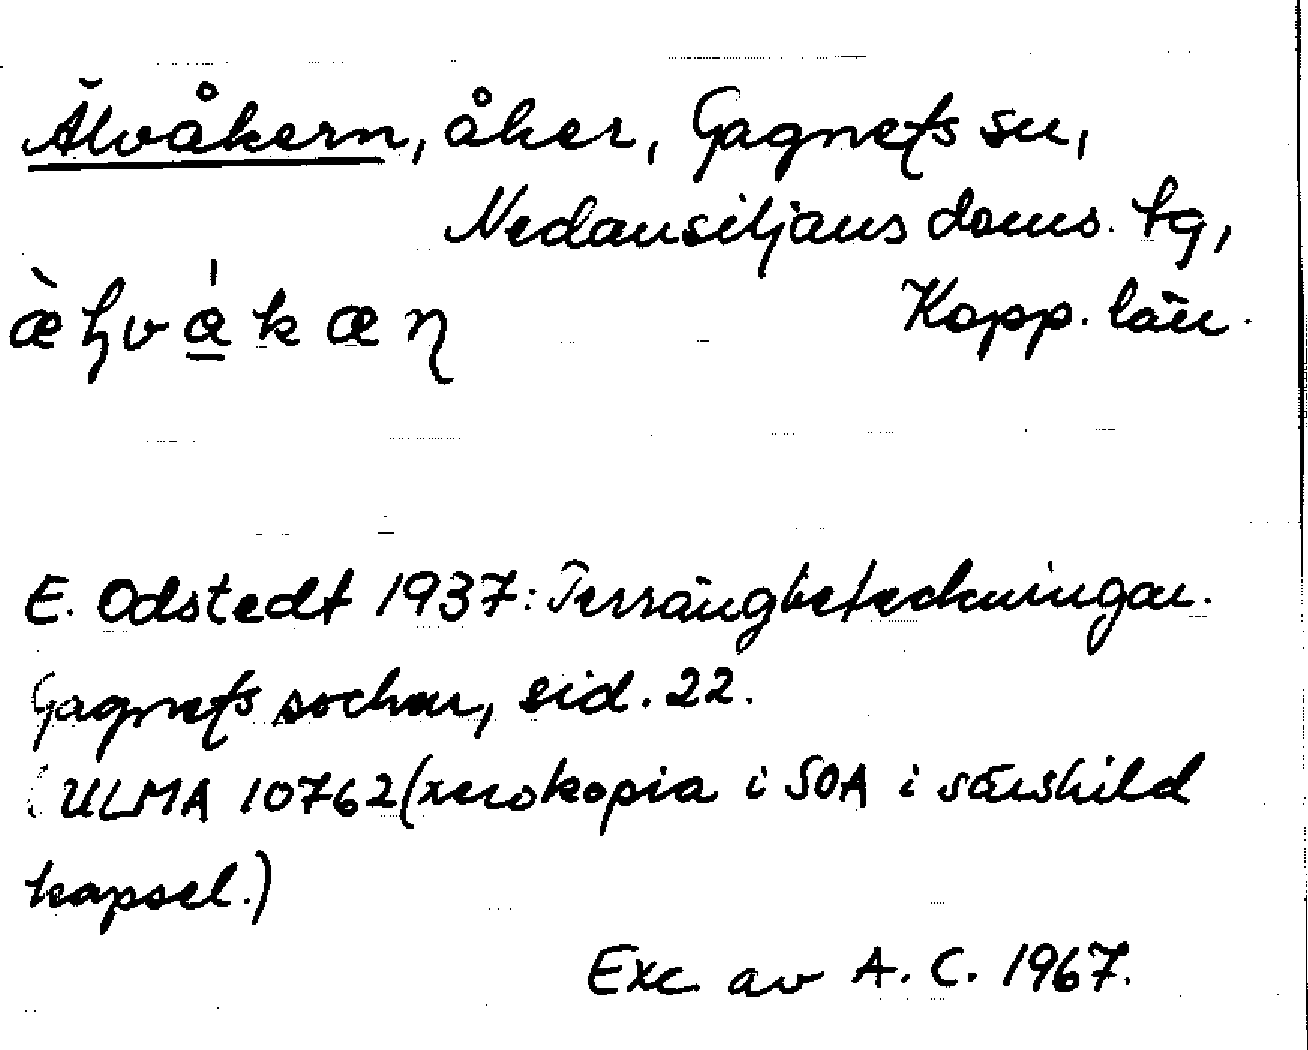 Älvåkern, åker, Gagnefs sn,
Nedansiljans doms. tg,
Kopp. län.
E. Odstedt 1937: Terrängbeteckningar.
Gagnefs socken, sid. 22.
(ULMA 10762 (xerokopia i SOA i särskild
kapsel.)
Exc. av A. C. 1967.